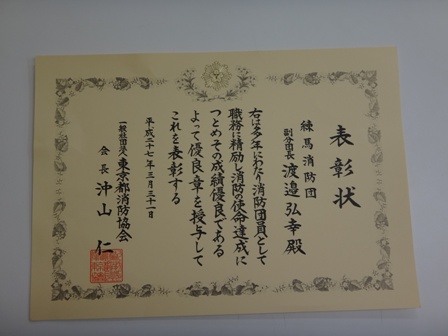 表彰状
練馬消防団
副分団長 渡邉弘幸殿
右は多年にわたり消防団員として
職務に精励し消防の使命達成に
つとめその成績優良である
よって優良章を授与して
これを表彰する
平成二十七年三月三十一日
一般社団法人 東京都消防協会
会長 沖山仁